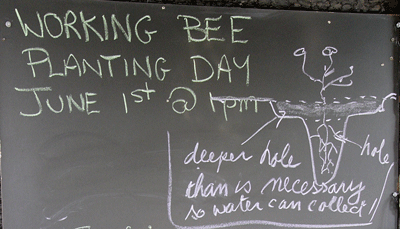 WORKING BEE
PLANTING DAY
JUNE 1st @ 1pm
deeper hole
hole
than is necessary
so water can collect!